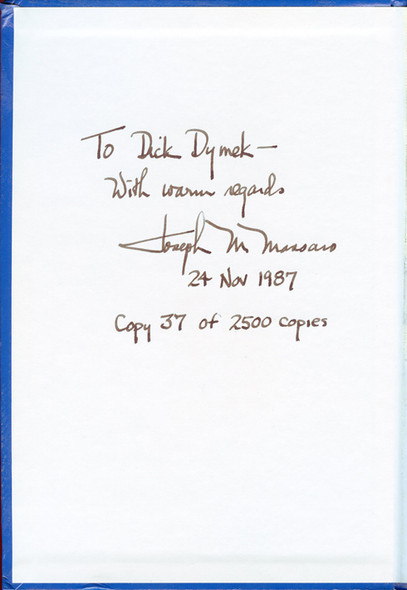 To Dick Dymek —
With warm regards
Joseph M Massaro
24 Nov 1987
Copy 37 of 2500 copies